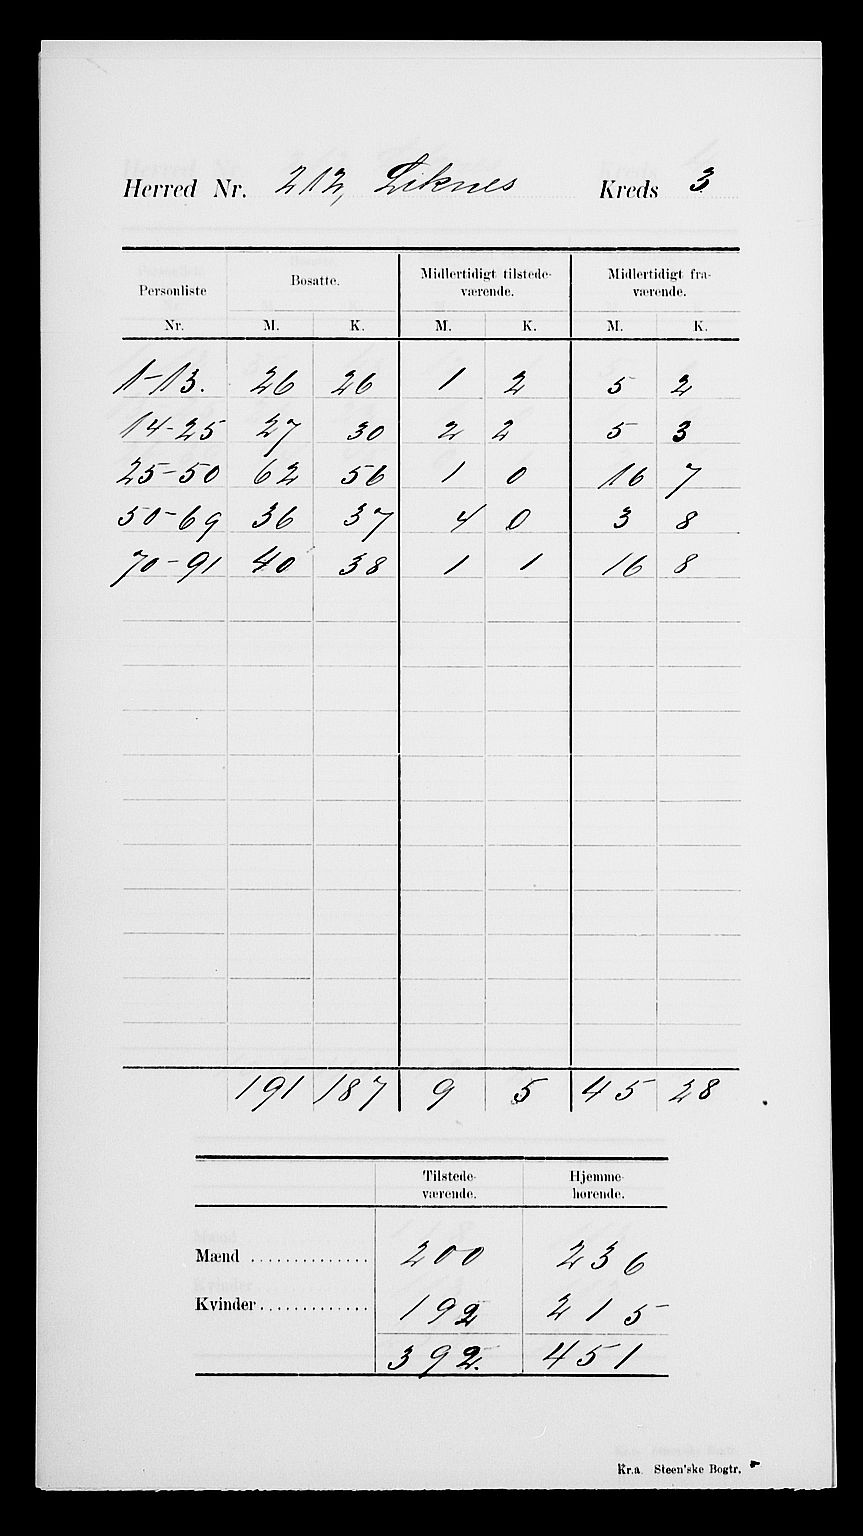 Herred Nr. 212, Liknes Kreds 3
Personliste Bosatte. Midlertidigt tilstede- Midlertidigt fra-
værende. værende.
Nr. M. K. M. K. M. K.
1-13. 26 26 1 2 5 2
14-25 27 30 2 2 5 3
25-50 62 56 1 0 16 7
50-69 36 37 4 0 3 8
70-91 40 38 1 1 16 8
191 187 9 5 45 28
Tilstede- Hjemme-
værende. hørende.
Mænd .............. 200 236
Kvinder ............. 192 215
392. 451
Kr.a. Steen'ske Bogtr.